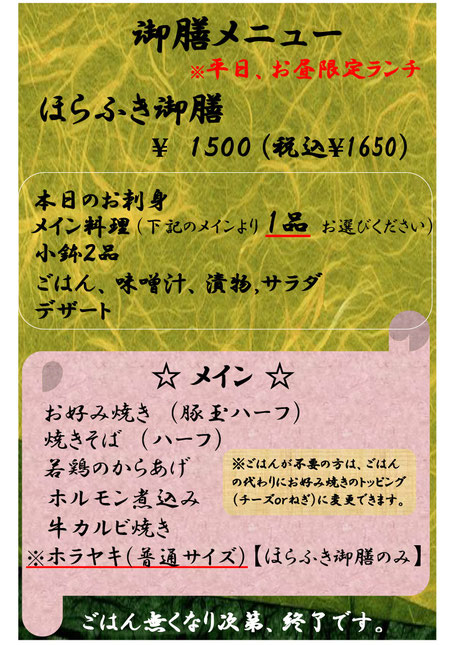 御膳メニュー
※平日、お昼限定ランチ
ほらふき御膳
¥ 1500(税込¥1650)
本日のお刺身
メイン料理(下記のメインより 1品 お選びください)
小鉢2品
ごはん、味噌汁、漬物,サラダ
デザート
☆ メイン ☆
お好み焼き (豚玉ハーフ)
焼きそば (ハーフ)
若鶏のからあげ
ホルモン煮込み
牛カルビ焼き
※ホラヤキ(普通サイズ)【ほらふき御膳のみ】
※ごはんが不要の方は、ごはん
の代わりにお好み焼きのトッピング
(チーズorねぎ)に変更できます。
ごはん無くなり次第、終了です。